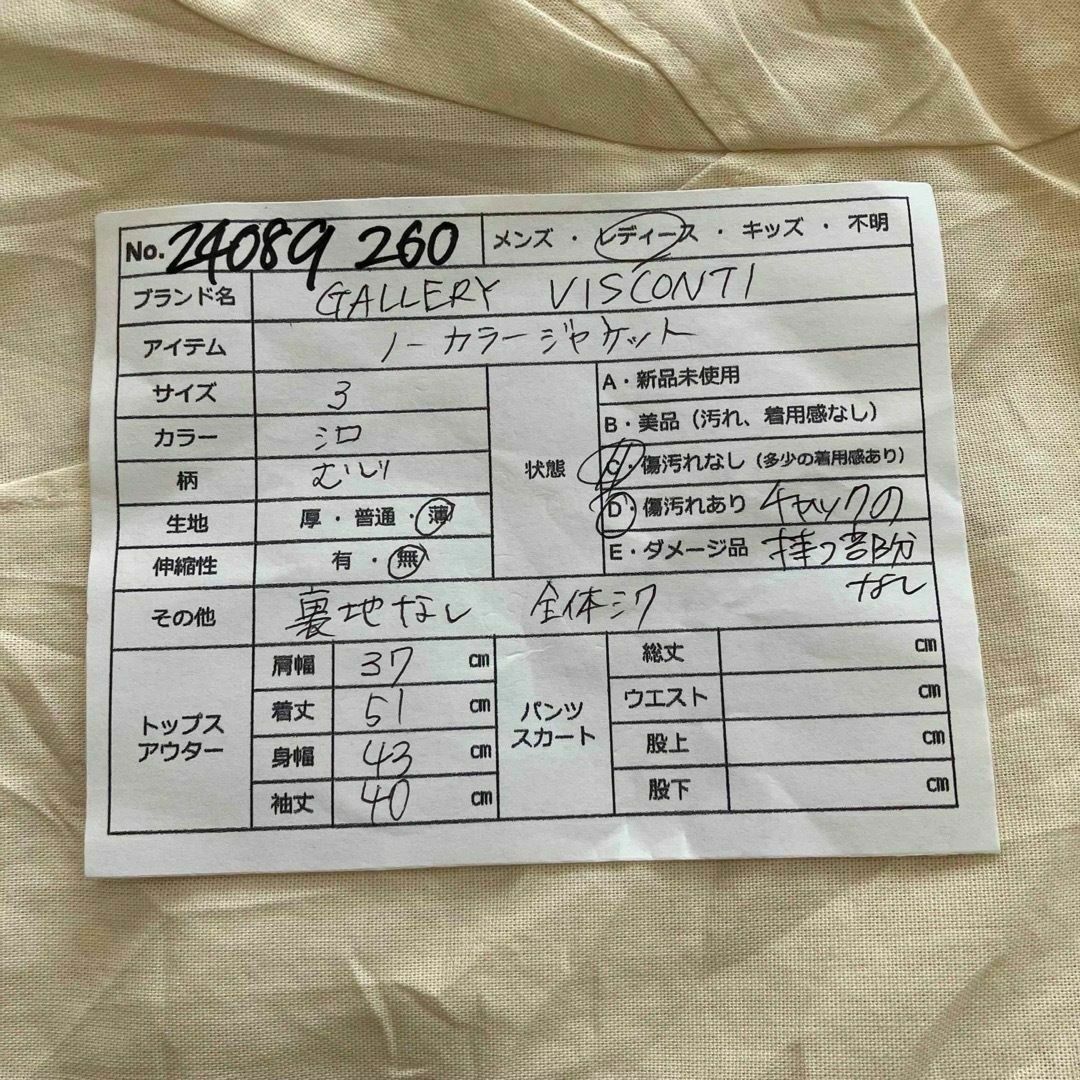 No. 24089 260 メンズ ・ レディース ・ キッズ ・ 不明
ブランド名 GALLERY VISCONTI
アイテム ノーカラージャケット
サイズ 3
カラー シロ
柄 むじ
生地 厚 ・ 普通 ・ 薄
伸縮性 有 ・ 無
状態
A・新品未使用
B・美品（汚れ、着用感なし）
C・傷汚れなし（多少の着用感あり）
D・傷汚れあり チャックの
E・ダメージ品 持つ部分
なし
その他 裏地なし 全体シワ
トップス
アウター
肩幅 37 cm
着丈 51 cm
身幅 43 cm
袖丈 40 cm
パンツ
スカート
総丈 cm
ウエスト cm
股上 cm
股下 cm